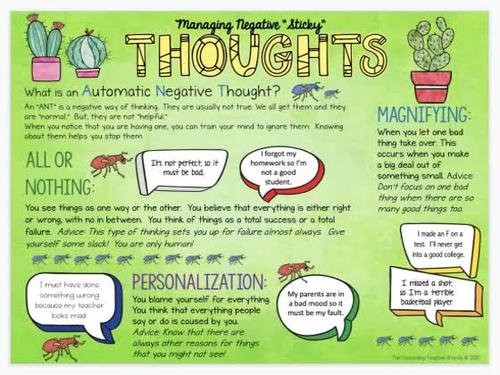 "Managing Negative "Sticky"
THOUGHTS
What is an Automatic Negative Thought?
An "ANT" is a negative way of thinking. They are usually not true. We all get them and they
are "normal." But, they are not "helpful."
When you notice that you are having one, you can train your mind to ignore them. Knowing
about them helps you stop them.
ALL OR
NOTHING:
It's not perfect, so it
must be bad.
I forgot my
homework so I'm
not a good
student.
You see things as one way or the other. You believe that everything is either right
or wrong, with no in between. You think of things as a total success or a total
failure. Advice: This type of thinking sets you up for failure almost always. Give
yourself some slack! You are only human!
MAGNIFYING:
When you let one bad
thing take over. This
occurs when you make
a big deal out of
something small. Advice:
Don't focus on one bad
thing when there are so
many good things too.
I made an F on a
test. I'll never get
into a good college.
I missed a shot,
so I'm a terrible
basketball player.
I must have done
something wrong
because my teacher
looks mad
PERSONALIZATION:
You blame yourself for everything.
You think that everything people
say or do is caused by you.
Advice: Know that there are
always other reasons for things
that you might not see!
My parents are in
a bad mood so it
must be my fault.